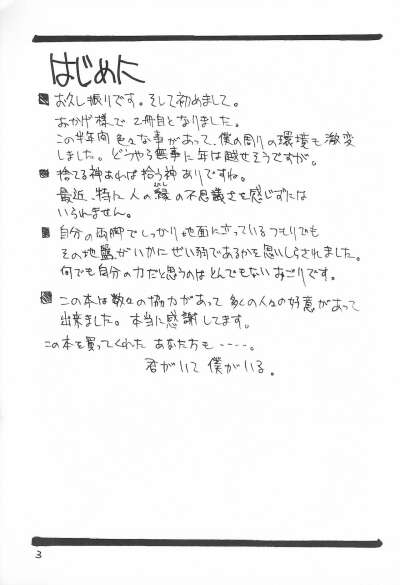 はじめに
お久し振りです。そして初めまして。
おかげ様で2冊目となりました。
この半年間色々な事があって、僕の周りの環境も激変
しました。どうやら無事に年は越せそうですが。
捨てる神あれば拾う神ありですね。
最近、特に人の縁の不思議さを感じずには
いられません。
自分の両脚でしっかり地面に立っているつもりでも
その地盤がいかにぜい弱であるかを思いしらされました。
何でも自分の力だと思うのはとんでもないおごりです。
この本は数々の協力があって多くの人々の好意があって
出来ました。本当に感謝してます。
この本を買ってくれたあなた方も……。
君がいて僕がいる。
3